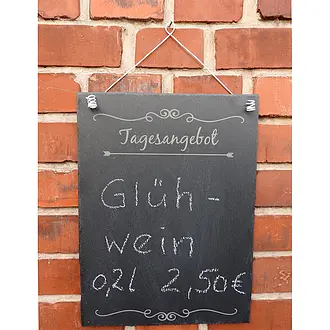 Tagesangebot
Glüh-
wein
0,2l 2,50€